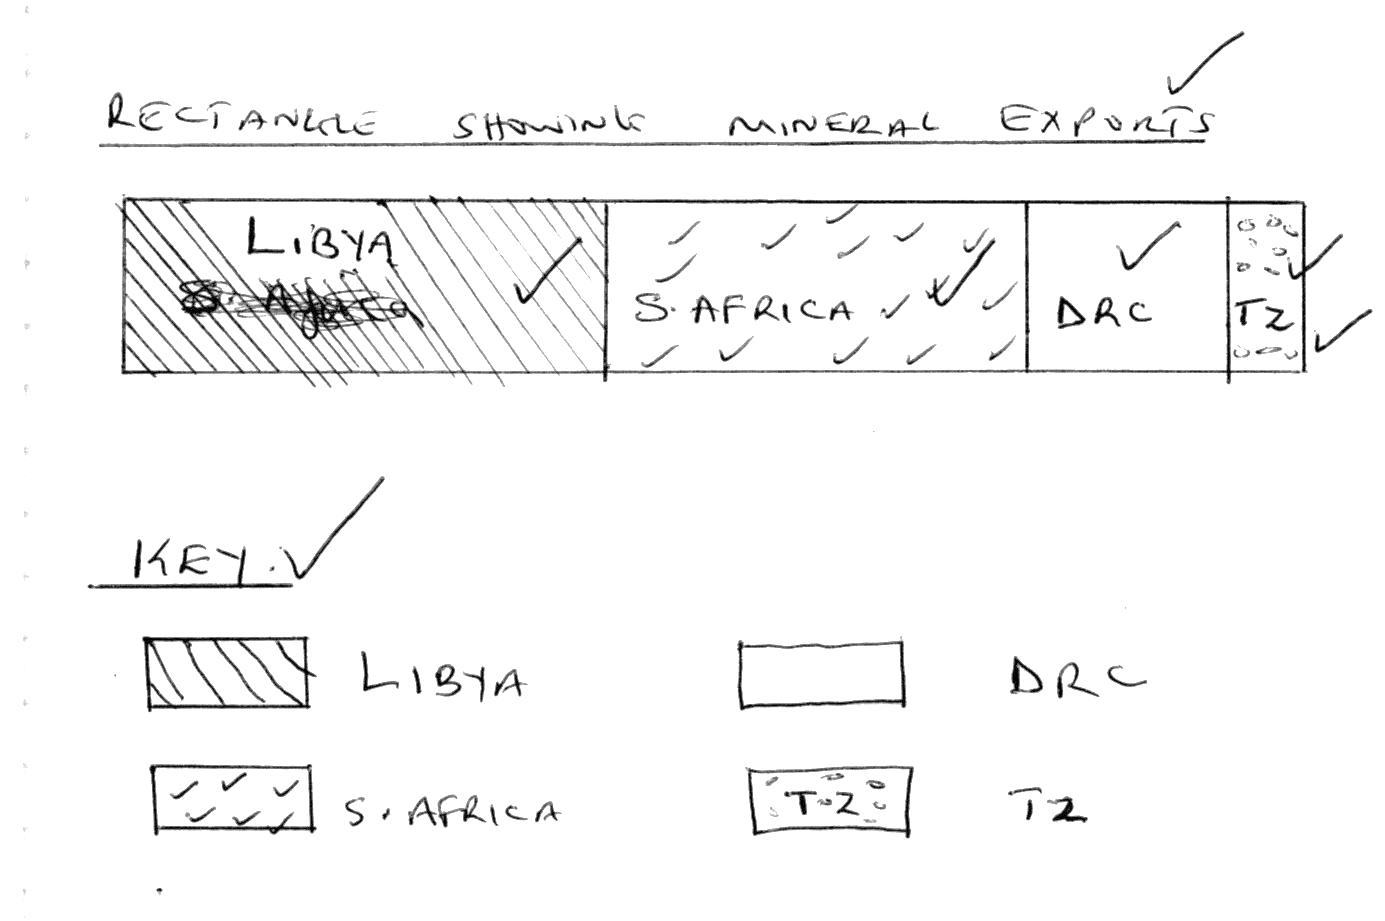 RECTANGLE SHOWING MINERAL EXPORTS
LIBYA
S. Africa
S. AFRICA
DRC
TZ
KEY.
LIBYA
DRC
S. AFRICA
T.Z
TZ